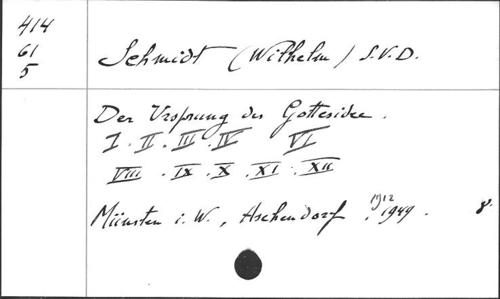 414
61
5
Schmidt (Wilhelm) S.V.D.
Der Ursprung der Gottesidee.
I. II. III. IV VI
VIII. IX. X. XI. XII
Münster i. W., Aschendorf, 1912
1949. 8.